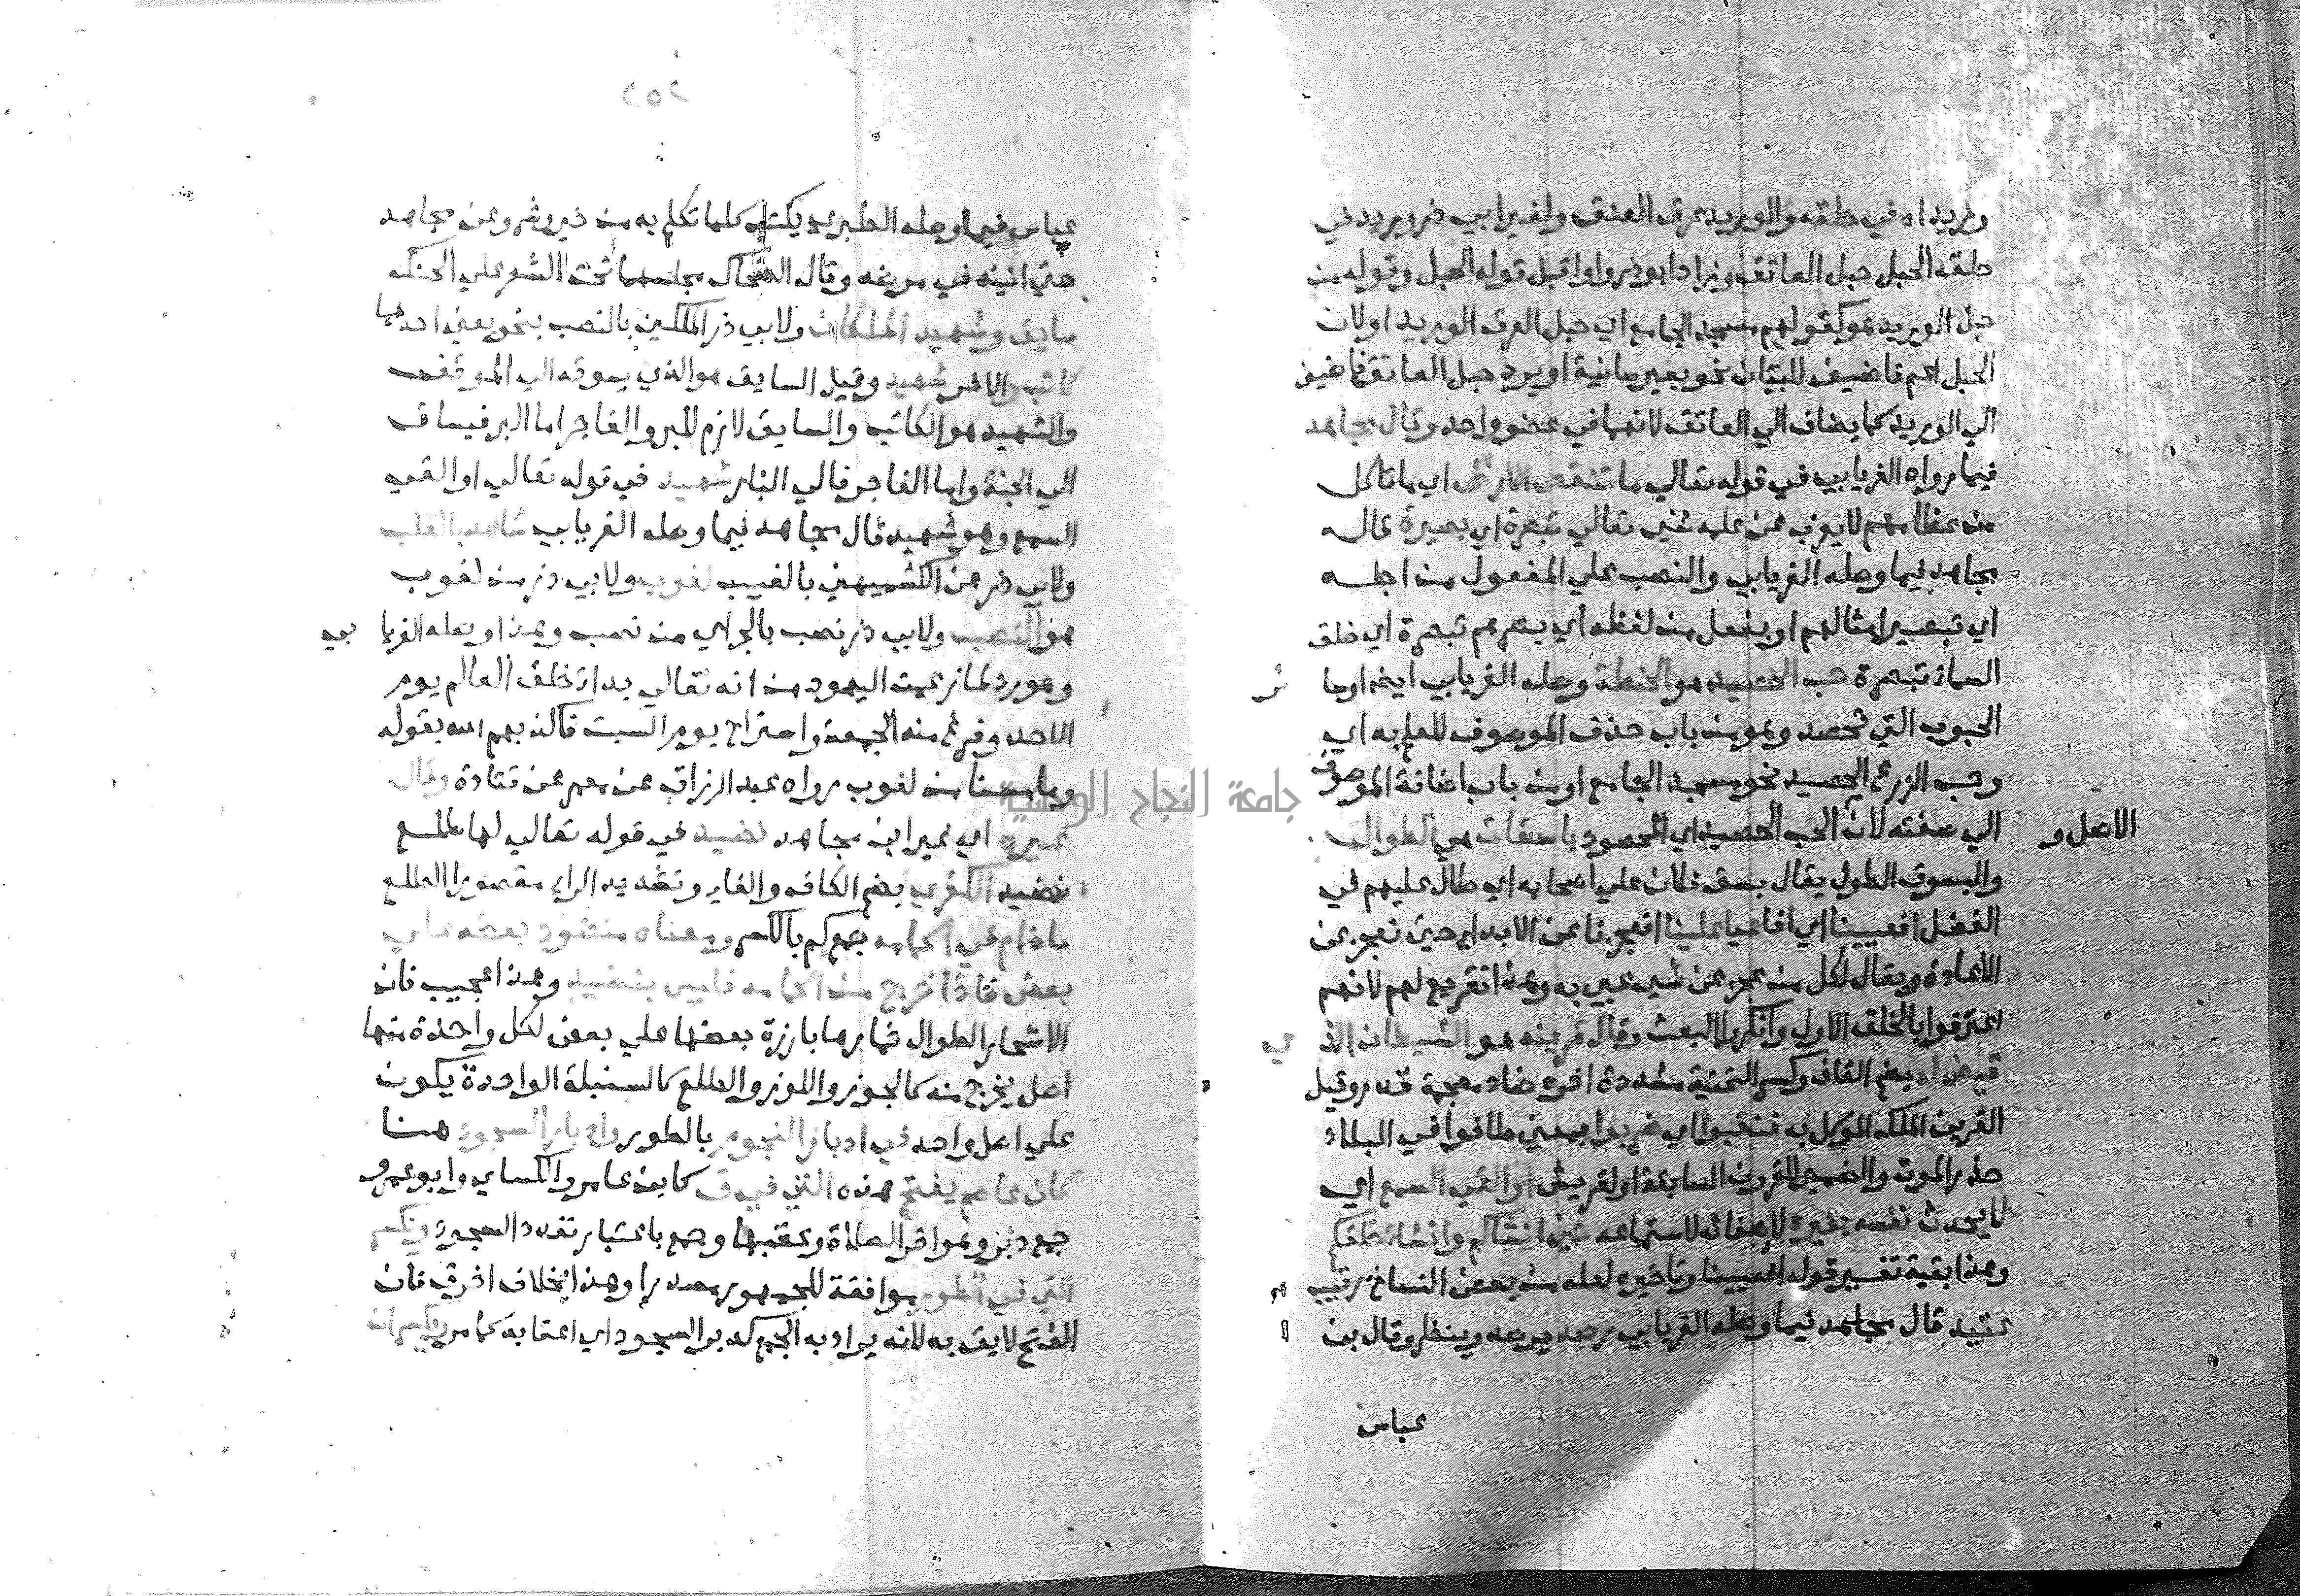 وريداه في حلقه والوريد عرق العنق ولغير ابي ذر وريد في
حلقه الحبل حبل العاتق وزاد ابو ذر واوا قبل قوله الحبل وقوله من
حبل الوريد هو كقولهم مسجد الجامع اي حبل العرق الوريد او لان
الحبل اعم فاضيف للبيان نحو بعير سانية او يرد حبل العاتق فاضيف
الي الوريد كما يضاف الي العاتق لانهما في عضو واحد وقال مجاهد
فيما رواه الفريابي في قوله تعالي ما تنقص الارض اي ما تاكل
من عظامهم لا يعزب عن علمه شي تعالي تبصرة اي بصيرة قاله
مجاهد فيما وصله الفريابي والنصب علي المفعول من اجله
اي تبصير امثالهم او بفعل من لفظه اي بصرهم تبصرة اي خلق
السماء تبصرة حب الحصيد هو الحنطة وصله الفريابي ايضا او سا ئر
الحبوب التي تحصد وهو من باب حذف الموصوف للعلم به اي
وحب الزرع الحصيد نحو مسجد الجامع او من باب اضافة الموصوف
الاصل و
الي صفته لان الحب الحصيد اي المحصود باسقات هي الطوال
والبسوق الطول يقال بسق فلان علي اصحابه اي طال عليهم في
الفضل افعيينا اي افاعيا علينا افعجزنا عن الابداء حين نعجز عن
الاعادة ويقال لكل من عجز عن شي عيي به وهذا تقريع لهم لانهم
اعترفوا بالخلق الاول وانكروا البعث وقال قرينه هو الشيطان الذ ي
قيض له بضم القاف وكسر التحتية مشددة اخره ضاد معجمة قدر وقيل
القرين الملك الموكل به فنقبوا اي ضربوا بمعني طافوا في البلاد
حذر الموت والضمير للقرون السابقة او لقريش او القي السمع اي
لا يحدث نفسه بغيره لاصغائه لاستماعه حين انشاكم وانشاء خلقكم
وهذا بقية تفسير قوله افعيينا وتاخيره لعله من بعض النساخ رقيب
عتيد قال مجاهد فيما وصله الفريابي رصد يرصد وينظر وقال بن
عباس
٢٥٢
عباس فيما وصله الطبري يكتب كلما تكلم به من خير وشر وعن مجاهد
حتي انينه في مرضه وقال الضحاك مجلسهما تحت الشعر علي الحنك
سايق وشهيد الملكان ولابي ذر الملكين بالنصب بنحو يعني احدهما
كاتب والاخر شهيد وقيل السايق هو الذي يسوقه الي الموقف
والشهيد هو الكاتب والسايق لازم للبر والفاجر اما البر فيساق
الي الجنة واما الفاجر فالي النار شهيد في قوله تعالي او القي
السمع وهو شهيد قال مجاهد فيما وصله الفريابي شاهد بالقلب
ولابي ذر عن الكشميهني بالغيب لغوب ولابي ذر من لغوب
هو النصب ولابي ذر نصب بالجر اي من نصب وهذا وصله الفريا بي
وهو رد لما زعمت اليهود من انه تعالي بدا خلق العالم يوم
الاحد وفرغ منه الجمعة واستراح يوم السبت فاكذبهم الله بقوله
وما مسنا من لغوب رواه عبد الرزاق عن معمر عن قتادة وقال
غيره اي غير ابن مجاهد نضيد في قوله تعالي لها طلع
نضيد الكفري بضم الكاف والفاء وتشديد الراء مقصورا الطلع
ما دام في اكمامه جمع كم بالكسر ومعناه منضود بعضه علي
بعض فاذا خرج من اكمامه فليس بنضيد وهذا عجيب فان
الاشجار الطوال ثمارها بارزة بعضها علي بعض لكل واحدة منها
اصل يخرج منه كالجوز واللوز والطلع كالسنبلة الواحدة يكون
علي اصل واحد في ادبار النجوم بالطور وادبار السجود هنا
كان عاصم يفتح هذه التي في ق كابن عامر والكساي وابو عمرو
جمع دبر وهو اخر الصلاة وعقبها وجمع باعتبار تعدد السجود ويكسر
التي في الطور موافقة للجمهور مصدرا وهذا بخلاف اخر ق فان
الفتح لايق به لانه يراد به الجمع كدبر السجود اي اعقابه كما مر ويكسران